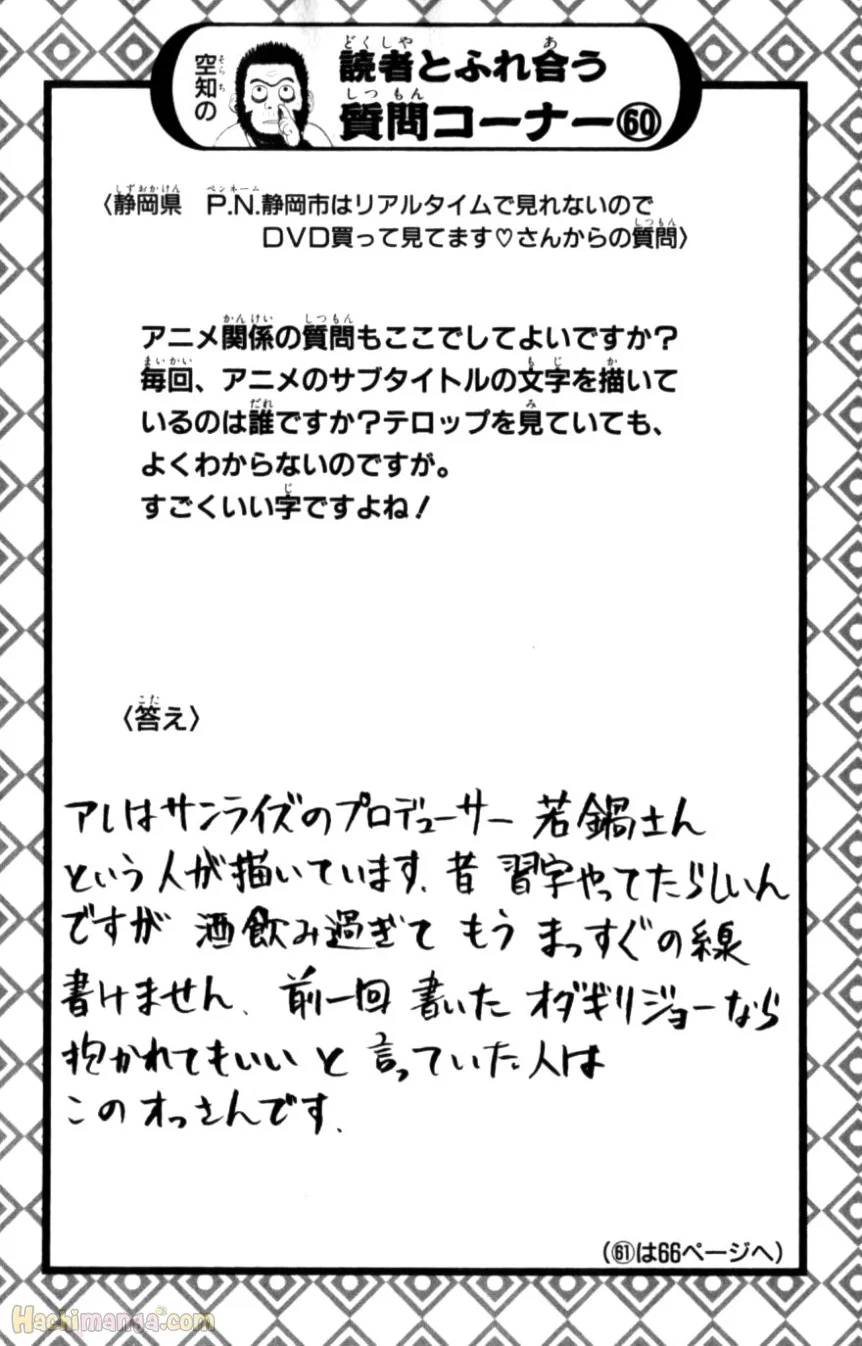 空知の
読者とふれ合う
質問コーナー㊿
〈静岡県 P.N.静岡市はリアルタイムで見れないので
DVD買って見てます♡さんからの質問〉
アニメ関係の質問もここでしてよいですか?
毎回、アニメのサブタイトルの文字を描いて
いるのは誰ですか?テロップを見ていても、
よくわからないのですが。
すごくいい字ですよね!
〈答え〉
アレはサンライズのプロデューサー 若鍋さん
という人が描いています。昔 習字やってたらしいん
ですが 酒飲み過ぎて もう まっすぐの線
書けません。前一回 書いた オダギリジョーなら
抱かれてもいい と 言っていた人は
この オっさんです。
(61は66ページへ)
Hachimanga.com